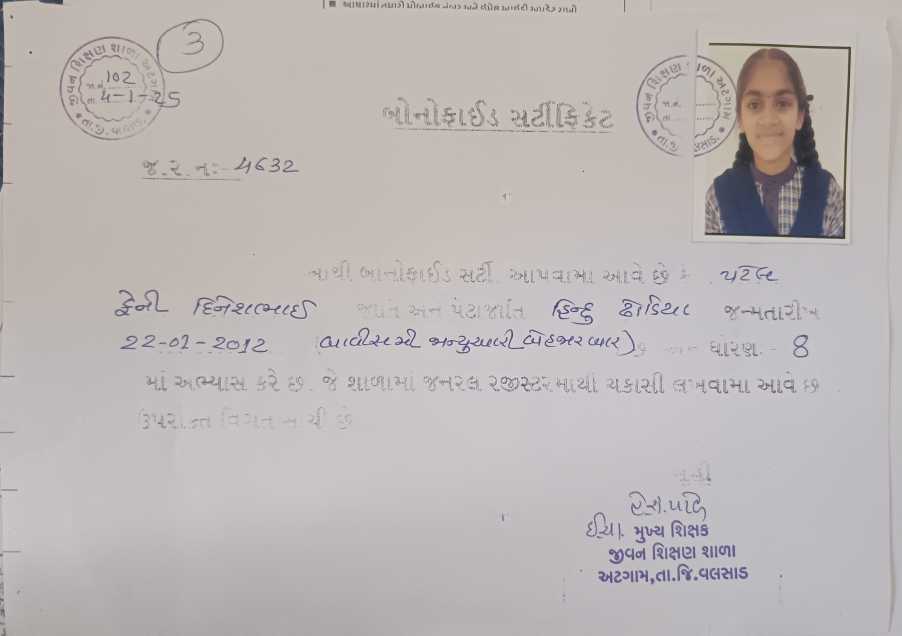 આધારમાં તમારો મોબાઈલ નંબર અને ઈમેલ આઈડી અપડેટ રાખો
3
જીવન શિક્ષણ શાળા અટગામ
જા.નં. 102
તા. 4-1-25
તા.જી. વલસાડ
બોનોફાઈડ સર્ટીફિકેટ
જીવન શિક્ષણ શાળા અટગામ
જા.નં.
તા.
તા.જી. વલસાડ
જ.ર.નં:- 4632
આથી બોનોફાઈડ સર્ટી આપવામા આવે છે કે પટેલ
ફેની દિનેશભાઈ જાતિ અને પેટાજાતિ હિન્દુ ઢોડિયા જન્મતારીખ
22-01-2012 (બાવીસમી જાન્યુઆરી બેહજાર બાર) છે અને ધોરણ - 8
માં અભ્યાસ કરે છે. જે શાળામાં જનરલ રજીસ્ટરમાથી ચકાસી લખવામા આવે છે
ઉપરોક્ત વિગત સાચી છે
ઈચા. મુખ્ય શિક્ષક
જીવન શિક્ષણ શાળા
અટગામ,તા.જિ.વલસાડ